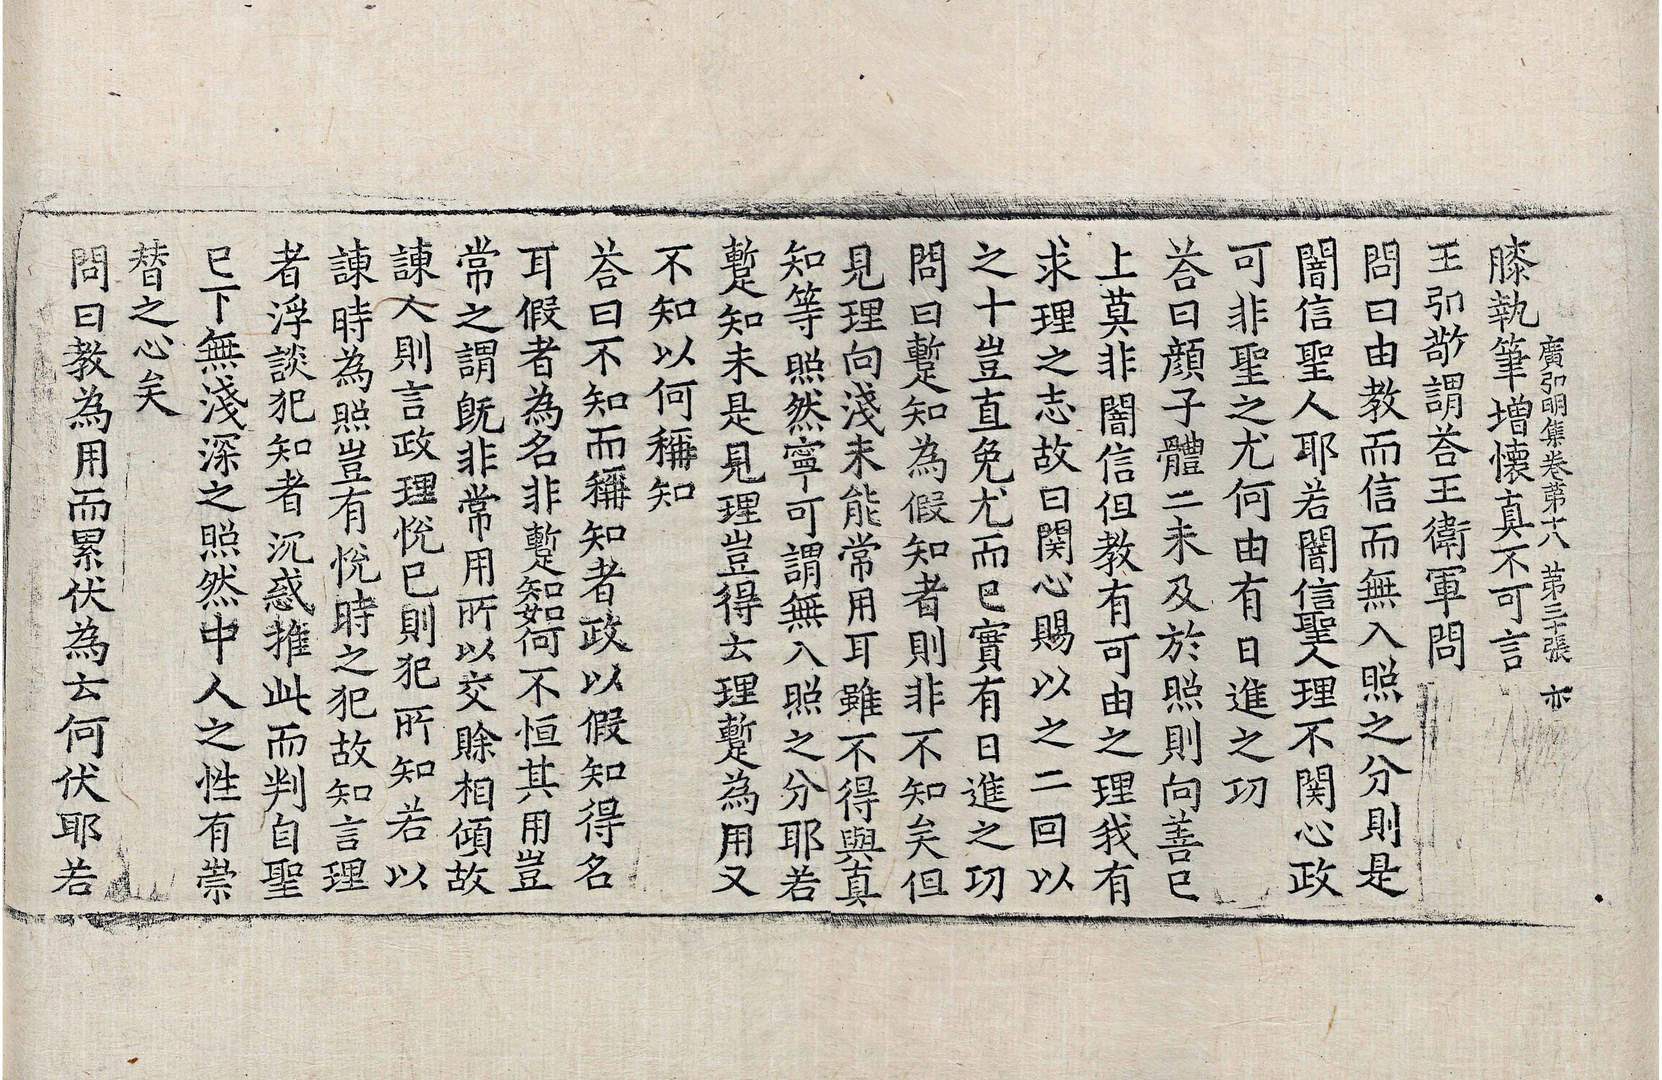 廣弘明集卷第十八 第三十張 亦
膝執筆增懷真不可言
王弘敬謂荅王衛軍問
問曰由教而信而無入照之分則是
闇信聖人耶若闇信聖人理不関心政
可非聖之尤何由有日進之功
荅曰顔子體二未及於照則向善已
上莫非闇信但教有可由之理我有
求理之志故曰関心賜以之二回以
之十豈直免尤而已實有日進之功
問曰蹔知為假知者則非不知矣但
見理向淺未能常用耳雖不得與真
知等照然寧可謂無入照之分耶若
蹔知未是見理豈得云理蹔為用又
不知以何稱知
荅曰不知而稱知者政以假知得名
耳假者為名非蹔知如何不恒其用豈
常之謂旣非常用所以交賒相傾故
諫人則言政理悅已則犯所知若以
諫時為照豈有悅時之犯故知言理
者浮談犯知者沉惑推此而判自聖
已下無淺深之照然中人之性有崇
替之心矣
問曰教為用而累伏為云何伏耶若